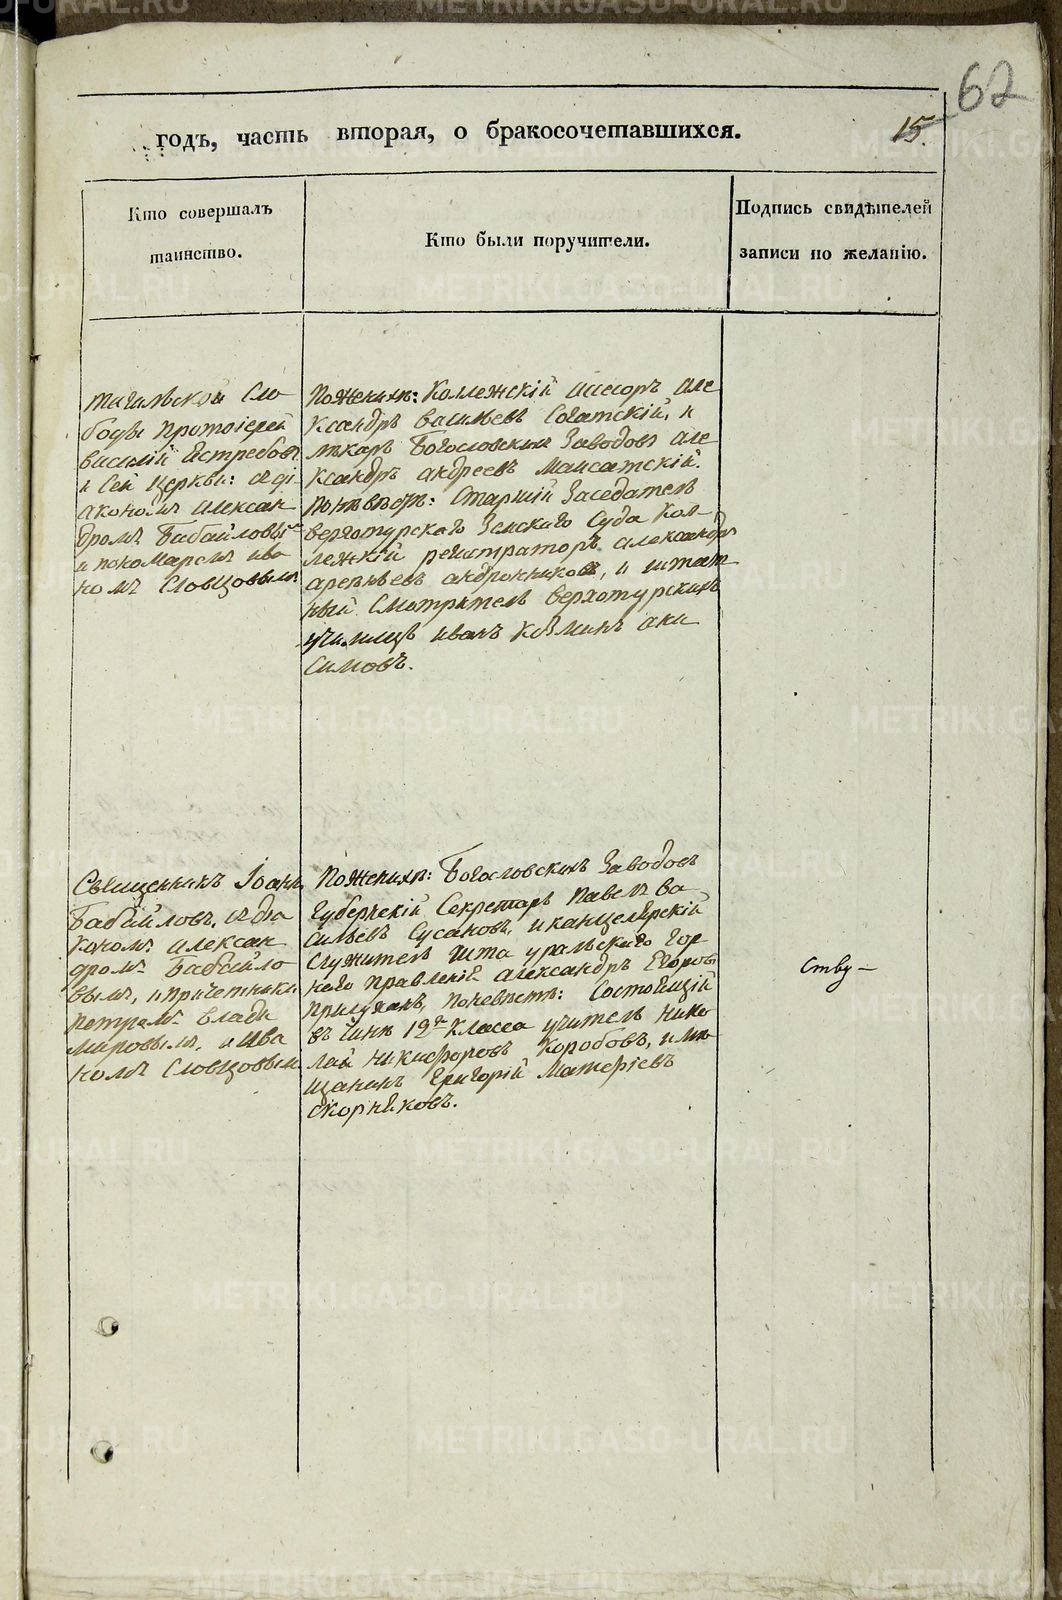 62
годъ, часть вторая, о бракосочетавшихся.
15.
Кто совершалъ
таинство.
Кто были поручители.
Подпись свидѣтелей
записи по желанію.
тагильской Сло
боды протоіерей
василій Ястребовъ
и сей церкви: съ ді
акономъ Алексан
дромъ Бабайловымъ
и пономаремъ ива
номъ Словцовымъ
По женихѣ: Коллежскій ассесоръ але
ксандръ васильевъ Согатскій, и
лѣкарь Богословскихъ Заводовъ але
ксандръ андреевъ
По невѣстѣ: Старшій Заседатель
верхотурскаго Земскаго Суда Кол-
лежкій регистраторъ александръ
андронниковъ, и штат
ный Смотритель верхотурскихъ
училищъ иванъ Козминъ аки
симовъ.
Священникъ Іоаннъ
Бабайловъ, съ діа
кономъ алексан
дромъ Бабайло
вымъ, и причетники
петромъ влади
мировымъ, и Ива
номъ Словцовымъ
По женихѣ: Богословскихъ Заводовъ
Губернскій Секретарь Павелъ Ва
сильевъ Сусановъ, и канцелярскій
Служитель Шта уральскаго Гор
наго правленія александръ Егоровъ
По невѣстѣ: Состоящій
въ чинѣ 12го класса учитель Нико
лай Никифоровъ Коробовъ, и мѣ
щанинъ Григорій Матфіевъ
скорняковъ.
Ству-
METRIKI.GASO-URAL.RU